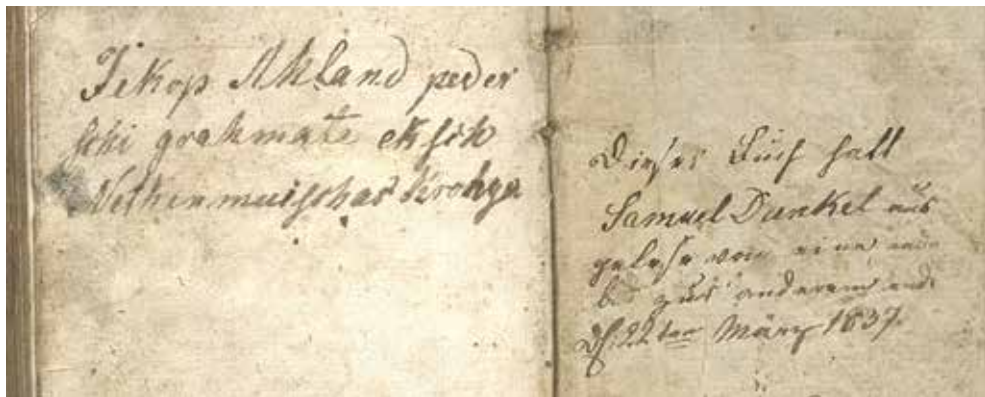 Jekop Akland peder
schi grahmate eksch
Nethenmuischas Krohga
Dieses Buch hatt
Samuel Dunkel aus
gelese von eine ende
bis zus anderem ende
d. 22ten März 1837.